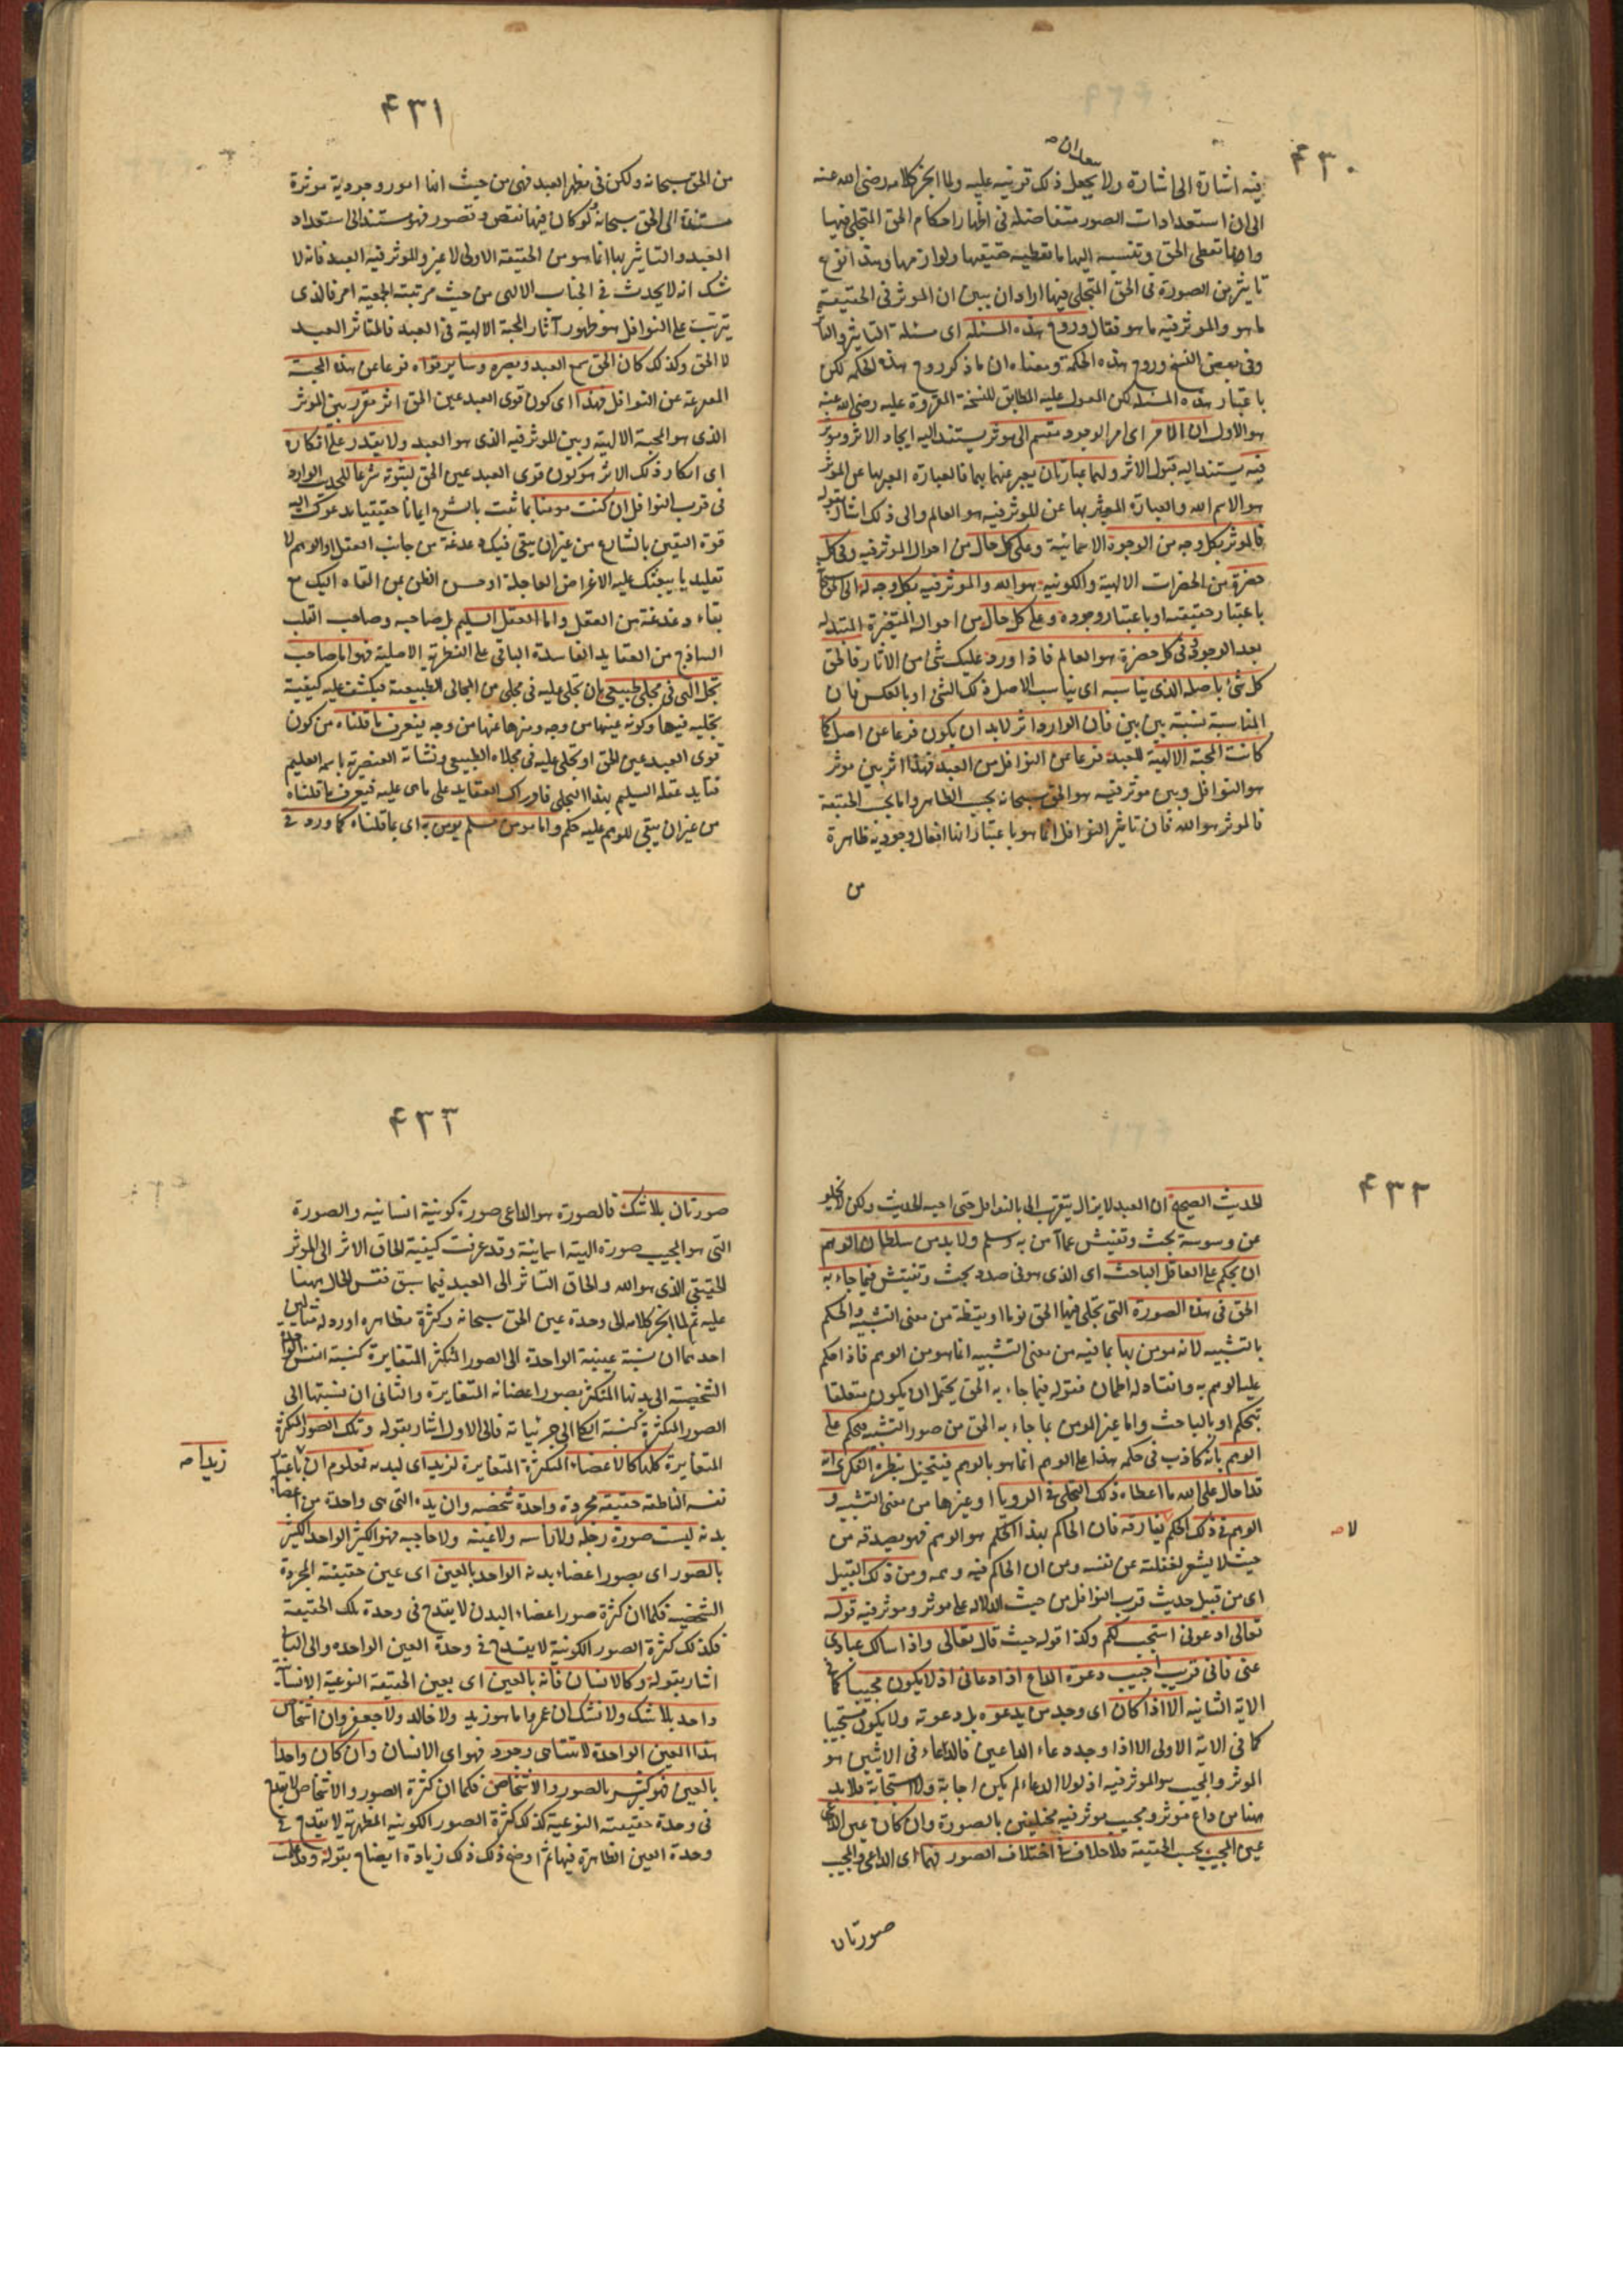 ۴۳۰
فيه اشارة الى اشارة ولا يجعل ذلك قرينة عليه ولما انجر كلامه رضى الله عنه
الى ان استعدادات الصور متفاضلة فى اظهار احكام الحق المتجلى فيها
وانها تعطى الحق وتنسب اليها ما تعطيه حقيقتها ولوازمها وهذا نوع
تاثير من الصورة فى الحق المتجلى فيها اراد ان يبين ان الموثر فى الحقيقة
ما هو والموثر فيه ما هو فقال وروح هذه المسئلة اى مسئلة التاثير والتا
وفى بعض النسخ وروح هذه الحكمة ومعناه ان ما ذكر روح هذه الحكمة لكن
باعتبار هذه المسئلة لكن المعول عليه المطابق للنسخة المقروة عليه رضى الله عنه
هو الاول ان الامر اى امر الوجود منقسم الى موثر يستند اليه ايجاد الاثر وموثر
فيه يستند اليه قبول الاثر ولهما عبارتان يعبر عنهما بهما فالعبارة المعبر بها عن الموثر
هو الاسم الله والعبارة المعبر بها عن الموثر فيه هو العالم والى ذلك اشار بقوله
فالموثر بكل وجه من الوجوه الاسمائية وعلى كل حال من احوال الموثر فيه وفى كل
حضرة من الحضرات الالهية والكونية هو الله والموثر فيه بكل وجه
باعتبار حقيقته او باعتبار وجوده وعلى كل حال من احواله المتغيرة المتبدلة
بعد الوجود وفى كل حضرة هو العالم فاذا ورد عليك شئ من الاثار فالحق
كل شئ باصله الذى يناسبه اى يناسب الاصل ذلك الشئ او بالعكس فان
المناسبة نسبة بين بين فان الوارد اثر لابد ان يكون فرعا عن اصل كما
كانت المحبة الالهية للعبد فرعا عن النوافل من العبد فهذا اثر بين موثر
هو النوافل وبين موثر فيه هو الحق سبحانه بحسب الظاهر واما بحسب الحقيقة
فالموثر هو الله فان تاثير النوافل انما هو باعتبار انها افعال وجودية ظاهرة
من
۴۳۱
من الحق سبحانه ولكن فى مظهر العبد فهى من حيث انها امور وجودية موثرة
مستندة الى الحق سبحانه ولو كان فيها نقص وقصور فهو مستند الى استعداد
العبد والتاثير بها انما هو من الحقيقة الاولى لا غير والموثر فيه العبد فانه لا
شك انه لا يحدث فى الجناب الالهى من حيث مرتبته الجمعية امر فالذى
يترتب على النوافل هو ظهور آثار المحبة الالهية فى العبد فالمتاثر العبد
لا الحق وكذلك كان الحق سمع العبد وبصره وساير قواه فرعا عن هذه المحبة
المفرعة عن النوافل فهذا اى كون قوى العبد عين الحق اثر مقرر بين الموثر
الذى هو المحبة الالهية وبين الموثر فيه الذى هو العبد ولا يقدر على انكاره
اى انكار ذلك الاثر هو كون قوى العبد عين الحق لثبوته شرعا للحديث الوارد
فى قرب النوافل ان كنت مومنا بما ثبت بالشرع ايمانا حقيقيا يدعوك اليه
قوة اليقين بالشارع من غير ان يبقى فيك دغدغة من جانب العقل او الوهم لا
تقليديا يبعثك عليه الاغراض العاجلة او حسن الظن بمن القاه اليك مع
بقاء دغدغة من العقل واما العقل السليم بل صاحبه وصاحب القلب
الساذج من العقايد الفاسدة الباقى على الفطرة الاصلية فهو اما صاحب
تجل الهى فى مجلى طبيعى بان تجلى عليه فى مجلى من المجالى الطبيعية فيكشف عليه كيفية
تجليه فيها وكونه عينها من وجه ومنزها عنها من وجه فيعرف ما قلناه من كون
قوى العبد عين الحق او تجلى عليه فى مجلاه الطبيعى ونشاته العنصرية باسمه العليم
فتايد عقله السليم بهذا التجلى فادراك العقايد على ما هى عليه فيعرف ما قلناه
من غير ان يبقى للوهم عليه حكم واما مومن مسلم يومن به اى بما قلناه كما ورد فى
۴۳۲
الحديث الصحيح ان العبد لا يزال يتقرب الى بالنوافل حتى احبه الحديث ولكن لا يخلو
عن وسوسة بحث وتفتيش عما آمن به وسلم ولا بد من سلطان الوهم
ان يحكم على العاقل الباحث اى الذى هو فى صدد بحث وتفتيش فيما جاء به
الحق فى هذه الصورة التى تجلى فيها الحق نوما او يقظة من معنى التشبيه والحكم
بالتشبيه لانه مومن بها بما فيه من معنى التشبيه انما هو من الوهم فاذا حكم
عليه الوهم به وانقاد له اطمان فقوله فيما جاء به الحق يحتمل ان يكون متعلقا
بيحكم او بالباحث واما غير المومن بما جاء به الحق من صور التشبيه فيحكم على
الوهم بانه كاذب فى حكمه بهذا على الوهم انما هو بالوهم فيتخيل بنظره الفكرى انه
قد احال على الله ما اعطاه ذلك التجلى فى الرويا او غيرها من معنى التشبيه و
الوهم فى ذلك الحكم يفارقه فان الحاكم بهذا الحكم هو الوهم فهو يصدقه من
لا صح
حيث لا يشعر لغفلته عن نفسه ومن ان الحاكم فيه وهمه ومن ذلك القبيل
اى من قبيل حديث قرب النوافل من حيث الدلالة على موثر وموثر فيه قوله
تعالى ادعونى استجب لكم وكذا قوله حيث قال تعالى واذا سالك عبادى
عنى فانى قريب اجيب دعوة الداع اذا دعانى اذ لا يكون مجيبا كما فى
الاية الثانية الا اذا كان اى وجد من يدعوه بل دعوته ولا يكون مستجيبا
كما فى الاية الاولى الا اذا وجد دعاء الداعين فالدعاء فى الايتين هو
الموثر والمجيب هو الموثر فيه اذ لولا الدعاء لم يكن اجابة ولا استجابة فلا بد
هنا من داع موثر ومجيب موثر فيه مختلفين بالصورة وان كان عين الداعى
عين المجيب بحسب الحقيقة فلا خلاف فى اختلاف الصور فهما اى الداعى والمجيب
صورتان
۴۳۳
صورتان بلا شك فالصورة هو الداعى صورة كونية انسانيه والصورة
التى هو المجيب صورة الهية اسمائية وقد عرفت كيفية الحاق الاثر الى الموثر
الحقيقى الذى هو الله والحاق التاثر الى العبد فيما سبق فقس الحال ههنا
عليه ثم لما انجر كلامه الى وحدة عين الحق سبحانه وكثرة مظاهره اورد له مثالين
احدهما ان نسبة عينية الواحدة الى الصور المتكثرة المتغايرة كنسبة النفس
الشخصية الى بدنها المتكثر بصور اعضائه المتغايرة والثانى ان نسبتها الى
الصور المتكثرة كنسبة الكلى الى جزئياته فالى الاول اشار بقوله وتلك الصور المتكثرة
المتغايرة كلها كالاعضاء المتكثرة المتغايرة لزيد اى لبدنه فمعلوم ان باعتبار
زيدا صح
نفسه الناطقة حقيقة مجردة واحدة شخصه وان يده التى هى واحدة من اعضاء
بدنه ليست صورة رجله ولا راسه ولا عينه ولا حاجبه فهو الكثير الواحد الكثير
بالصور اى بصور اعضاء بدنه الواحد بالعين اى عين حقيقته المجردة
الشخصية فكما ان كثرة صور اعضاء البدن لا يقدح فى وحدة تلك الحقيقة
فكذلك كثرة الصور الكونية لا يقدح فى وحدة العين الواحدة والى الثانى
اشار بقوله وكالانسان فانه بالعين اى بعين الحقيقة النوعية الانسا
واحد بلا شك ولا نشك ان عمرا ما هو زيد ولا خالد ولا جعفر وان اشخاص
هذا العين الواحدة لا تتناهى وجود فهو اى الانسان وان كان واحدا
بالعين فهو كثير بالصور والاشخاص فكما ان كثرة الصور والاشخاص لا يقدح
فى وحدة حقيقته النوعية كذلك كثرة الصور الكونية المظهرية لا يقدح فى
وحدة العين الظاهرة فيها ثم اوضح ذلك زيادة ايضاح بقوله وقد علمت